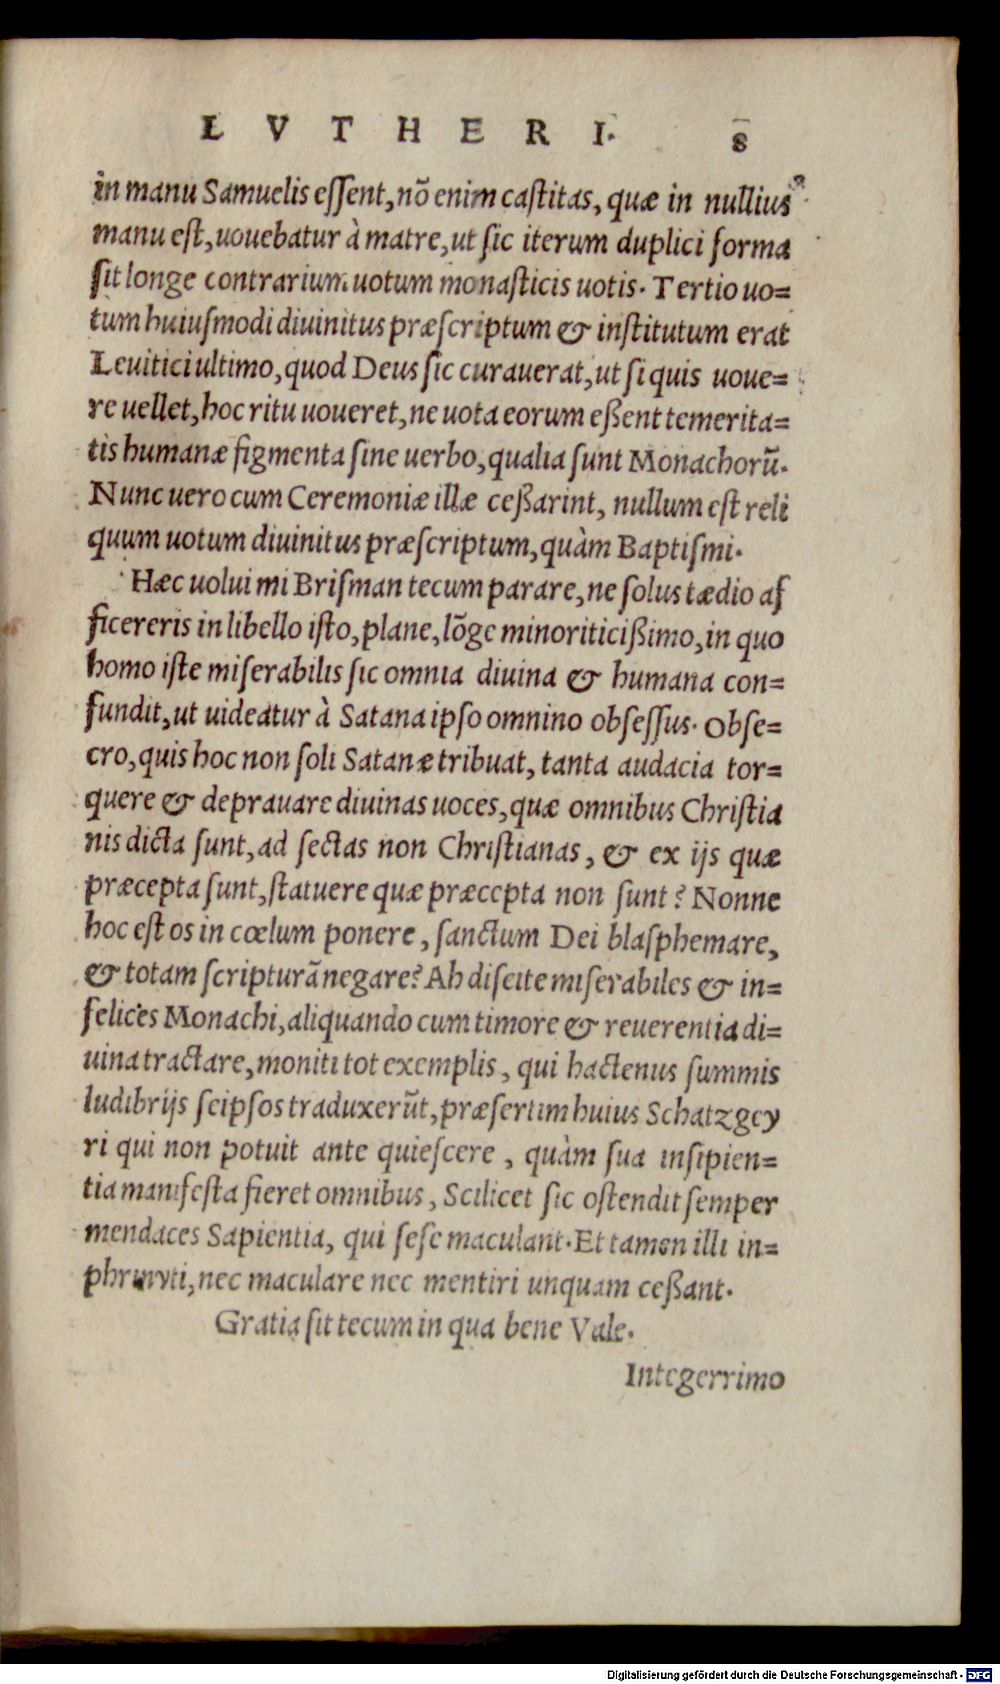 LVTHERI. 8
in manu Samuelis eſſent, nõ enim caſtitas, quæ in nullius
manu eſt, uouebatur à matre, ut ſic iterum duplici forma
ſit longe contrarium uotum monaſticis uotis. Tertio uo=
tum huiuſmodi diuinitus præſcriptum & inſtitutum erat
Leuitici ultimo, quod Deus ſic curauerat, ut ſi quis uoue=
re uellet, hoc ritu uoueret, ne uota eorum eßent temerita=
tis humanæ figmenta ſine uerbo, qualia ſunt Monachorũ.
Nunc uero cum Ceremoniæ illæ ceßarint, nullum eſt reli
quum uotum diuinitus præſcriptum, quàm Baptiſmi.
Hæc uolui mi Briſman tecum parare, ne ſolus tædio af
ficereris in libello iſto, plane, lõge minoriticißimo, in quo
homo iſte miſerabilis ſic omnia diuina & humana con=
fundit, ut uideatur à Satana ipſo omnino obſeſſus. Obſe=
cro, quis hoc non ſoli Satanæ tribuat, tanta audacia tor=
quere & deprauare diuinas uoces, quæ omnibus Chriſtia
nis dicta ſunt, ad ſectas non Chriſtianas, & ex ijs quæ
præcepta ſunt, ſtatuere quæ præcepta non ſunt? Nonne
hoc eſt os in cœlum ponere, ſanctum Dei blaſphemare,
& totam ſcripturã negare? Ah diſcite miſerabiles & in=
felices Monachi, aliquando cum timore & reuerentia di=
uina tractare, moniti tot exemplis, qui hactenus ſummis
ludibrijs ſeipſos traduxerũt, præſertim huius Schatzgey
ri qui non potuit ante quieſcere, quàm ſua inſipien=
tia manifeſta fieret omnibus, Scilicet ſic oſtendit ſemper
mendaces Sapientia, qui ſeſe maculant. Et tamen illi in=
phrunyti, nec maculare nec mentiri unquam ceßant.
Gratia ſit tecum in qua bene Vale.
Integerrimo
Digitalisierung gefördert durch die Deutsche Forschungsgemeinschaft - DFG